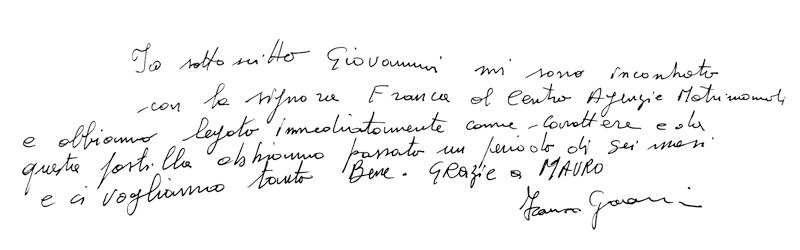 Io sotto scritto Giovanni mi sono incontrato
con la signora Franca al Centro Agenzie Matrimoniali
e abbiamo legato immediatamente come carattere e da
questa scintilla abbiamo passato un periodo di sei mesi
e ci vogliamo tanto Bene. GRAZie a MAURO
Franca